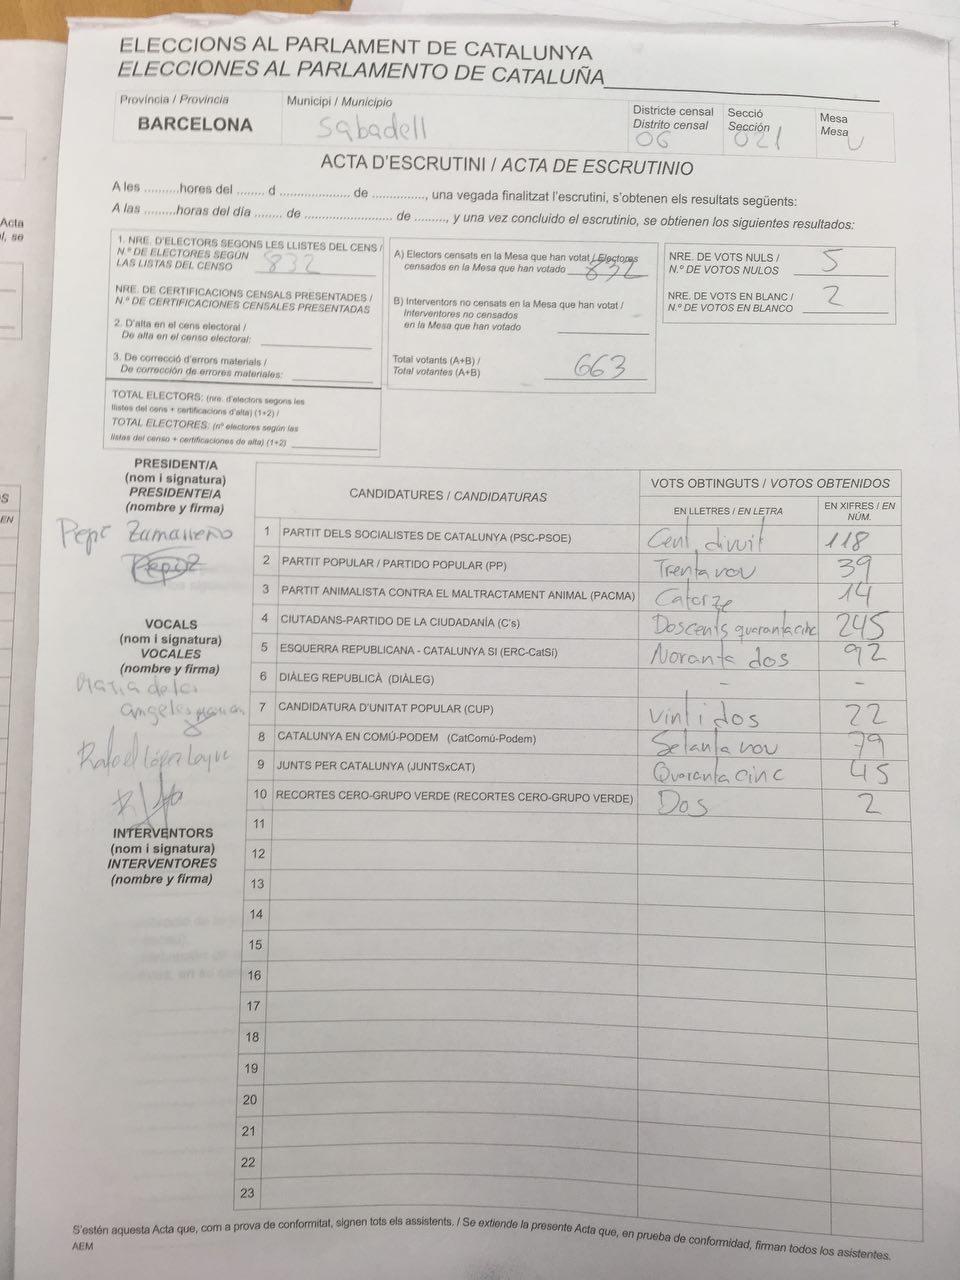 ELECCIONS AL PARLAMENT DE CATALUNYA
ELECCIONES AL PARLAMENTO DE CATALUÑA
Província / Provincia
BARCELONA
Municipi / Municipio
Sabadell
Districte censal
Distrito censal
06
Secció
Sección
021
Mesa
Mesa
U
ACTA D'ESCRUTINI / ACTA DE ESCRUTINIO
A les ..........hores del ........ d .................... de ..............., una vegada finalitzat l'escrutini, s'obtenen els resultats següents:
A las .........horas del día ........ de ......................... de ........., y una vez concluido el escrutinio, se obtienen los siguientes resultados:
1. NRE. D'ELECTORS SEGONS LES LLISTES DEL CENS /
N.º DE ELECTORES SEGÚN
LAS LISTAS DEL CENSO 832
NRE. DE CERTIFICACIONS CENSALS PRESENTADES /
N.º DE CERTIFICACIONES CENSALES PRESENTADAS
2. D'alta en el cens electoral /
De alta en el censo electoral:
3. De correcció d'errors materials /
De corrección de errores materiales:
TOTAL ELECTORS: (nre. d'electors segons les
llistes del cens + certificacions d'alta) (1+2) /
TOTAL ELECTORES: (nº electores según las
listas del censo + certificaciones de alta) (1+2)
A) Electors censats en la Mesa que han votat / Electores
censados en la Mesa que han votado 832
B) Interventors no censats en la Mesa que han votat /
Interventores no censados
en la Mesa que han votado
Total votants (A+B) /
Total votantes (A+B) 663
NRE. DE VOTS NULS /
N.º DE VOTOS NULOS 5
NRE. DE VOTS EN BLANC /
N.º DE VOTOS EN BLANCO 2
PRESIDENT/A
(nom i signatura)
PRESIDENTE/A
(nombre y firma)
Pepe Zamarreño
VOCALS
(nom i signatura)
VOCALES
(nombre y firma)
Maria de los
Angeles
Rafael López
INTERVENTORS
(nom i signatura)
INTERVENTORES
(nombre y firma)
CANDIDATURES / CANDIDATURAS
VOTS OBTINGUTS / VOTOS OBTENIDOS
EN LLETRES / EN LETRA
EN XIFRES / EN NÚM.
1 PARTIT DELS SOCIALISTES DE CATALUNYA (PSC-PSOE) Cent divuit 118
2 PARTIT POPULAR / PARTIDO POPULAR (PP) Trenta nou 39
3 PARTIT ANIMALISTA CONTRA EL MALTRACTAMENT ANIMAL (PACMA) Catorze 14
4 CIUTADANS-PARTIDO DE LA CIUDADANÍA (C's) Doscents quaranta cinc 245
5 ESQUERRA REPUBLICANA - CATALUNYA SI (ERC-CatSí) Noranta dos 92
6 DIÀLEG REPUBLICÀ (DIÀLEG) - -
7 CANDIDATURA D'UNITAT POPULAR (CUP) Vint i dos 22
8 CATALUNYA EN COMÚ-PODEM (CatComú-Podem) Setanta nou 79
9 JUNTS PER CATALUNYA (JUNTSxCAT) Quaranta cinc 45
10 RECORTES CERO-GRUPO VERDE (RECORTES CERO-GRUPO VERDE) Dos 2
11
12
13
14
15
16
17
18
19
20
21
22
23
S'estén aquesta Acta que, com a prova de conformitat, signen tots els assistents. / Se extiende la presente Acta que, en prueba de conformidad, firman todos los asistentes.
AEM